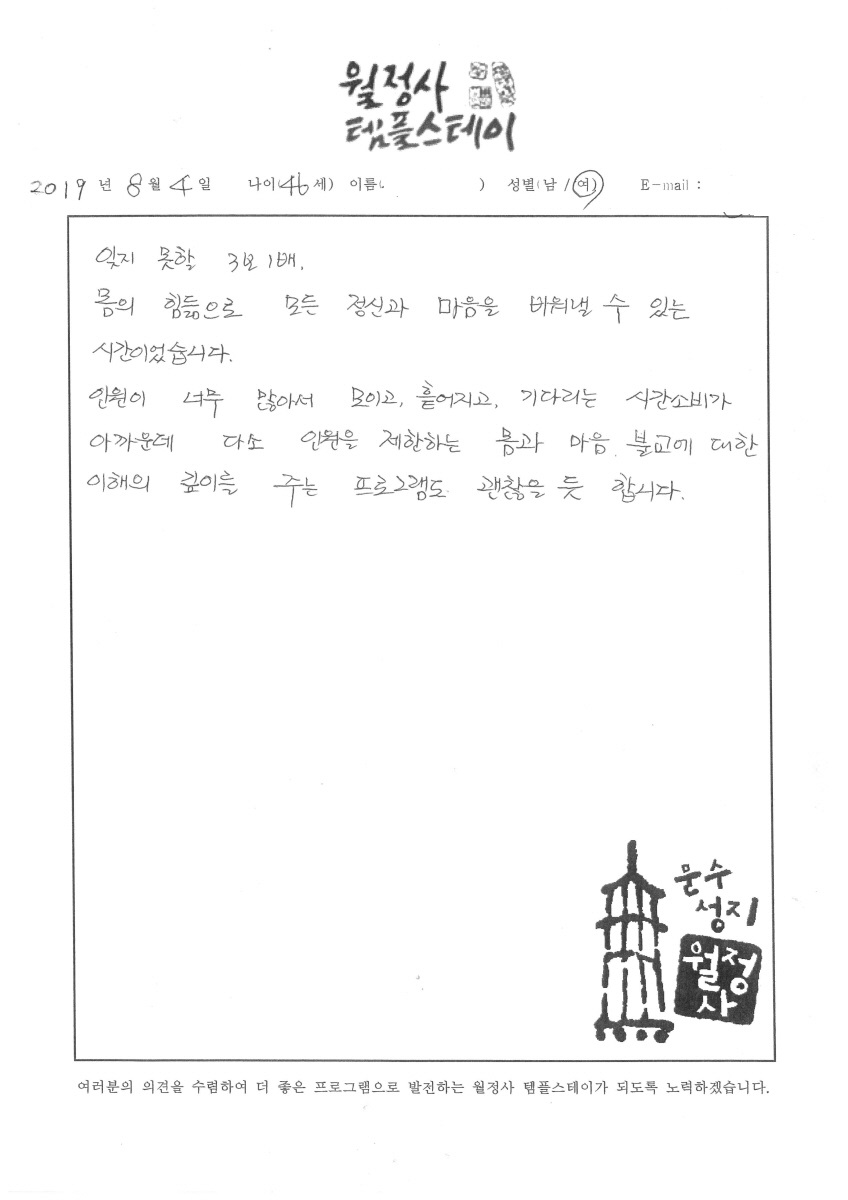 월정사
템플스테이
2019 년 8 월 4 일 나이(46 세) 이름( ) 성별(남 / 여) E-mail :
잊지 못할 3보 1배.
몸의 힘듦으로 모든 정신과 마음을 비워낼 수 있는
시간이었습니다.
인원이 너무 많아서 모이고, 흩어지고, 기다리는 시간소비가
아까운데 다소 인원을 제한하는 몸과 마음, 불교에 대한
이해의 깊이를 주는 프로그램도 괜찮을 듯 합니다.
문수
성지
월정
사
여러분의 의견을 수렴하여 더 좋은 프로그램으로 발전하는 월정사 템플스테이가 되도록 노력하겠습니다.